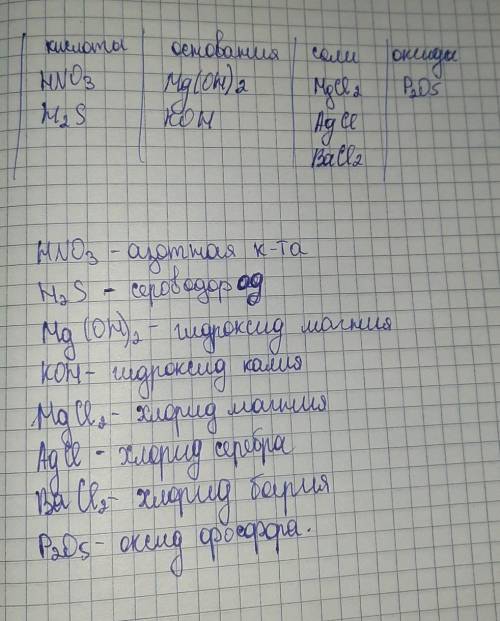 кислоты основания соли оксиды
HNO3 Mg(OH)2 MgCl2 P2O5
H2S KOH AgCl
BaCl2
HNO3 - азотная к-та
H2S - сероводород
Mg(OH)2 - гидроксид магния
KOH - гидроксид калия
MgCl2 - хлорид магния
AgCl - хлорид серебра
BaCl2 - хлорид бария
P2O5 - оксид фосфора.